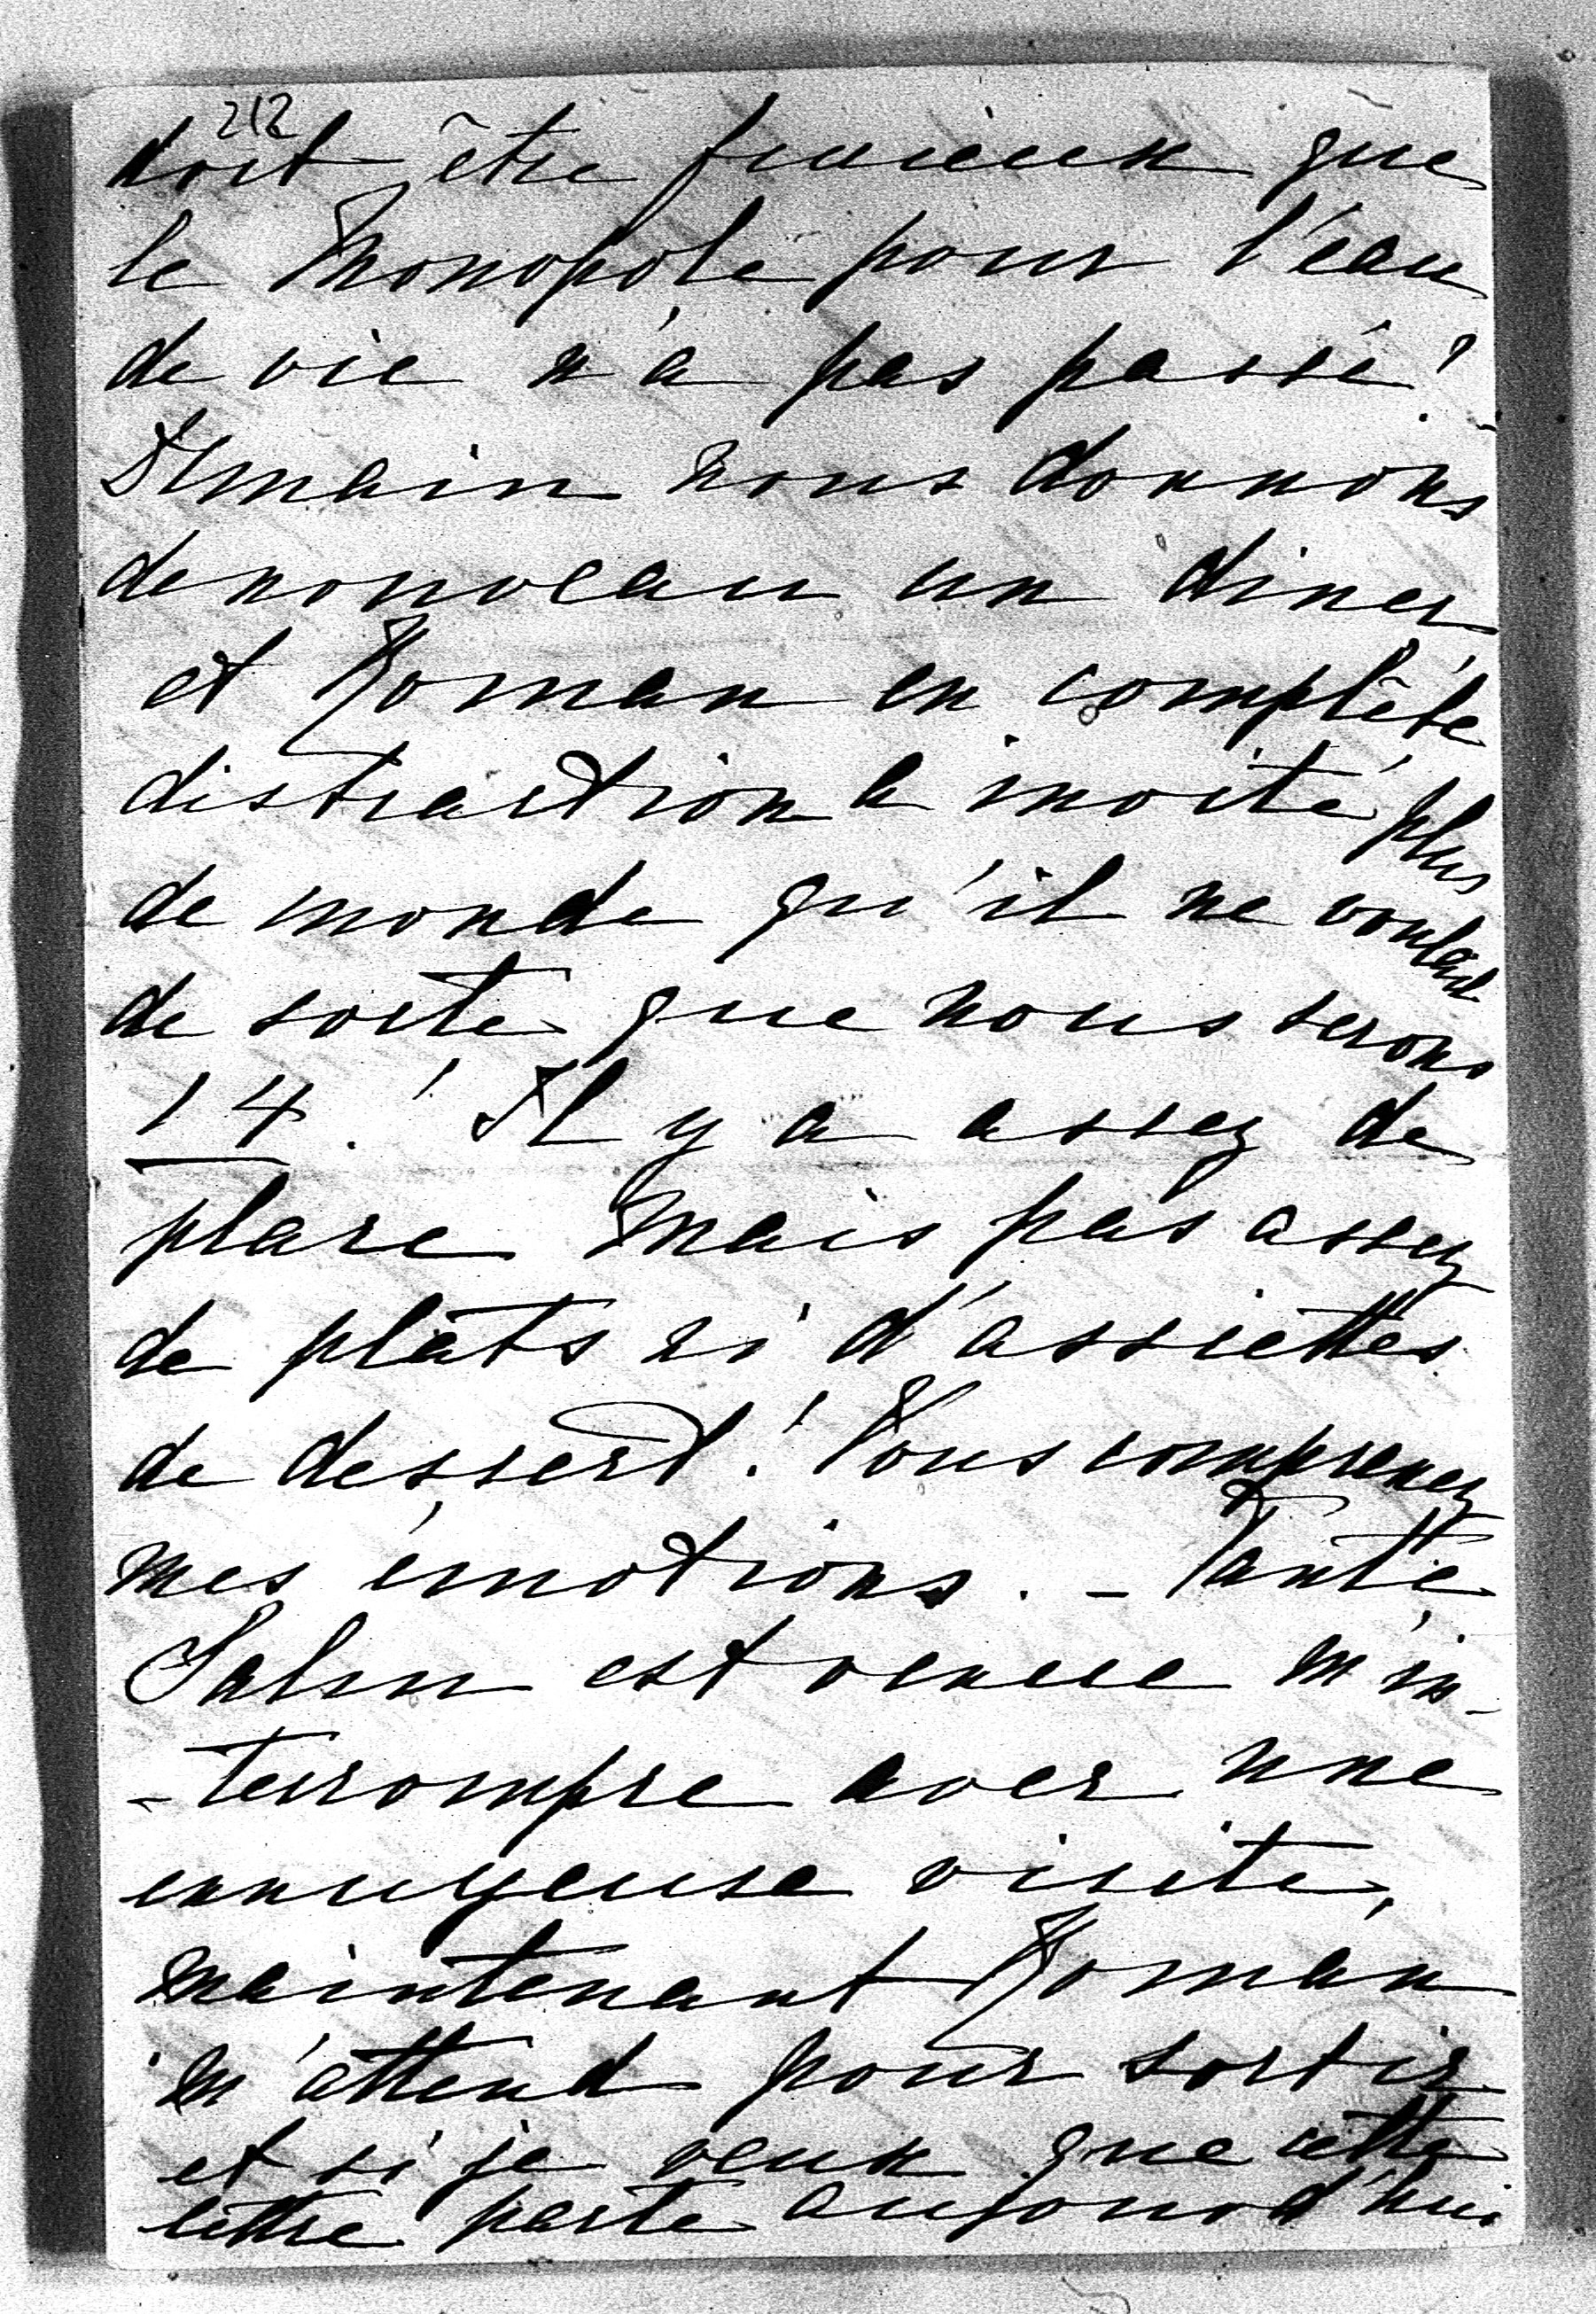 212
doit être furieux que
le Monopole pour l'eau
de vie n'a pas passé!
Demain nous donnons
de nouveau un diner
et Roman en complète
distraction a invité plus
de monde qu'il ne voulait
de sorte que nous serons
14! Il y a assez de
place mais pas assez
de plats ni d'assiettes
de dessert! Vous comprenez
mes émotions. - Tante
Salm est venue m'in-
-terrompre avec une
ennuyeuse visite,
maintenant Roman
m'attend pour sortir
et si je veux que cette
lettre parte aujourd'hui